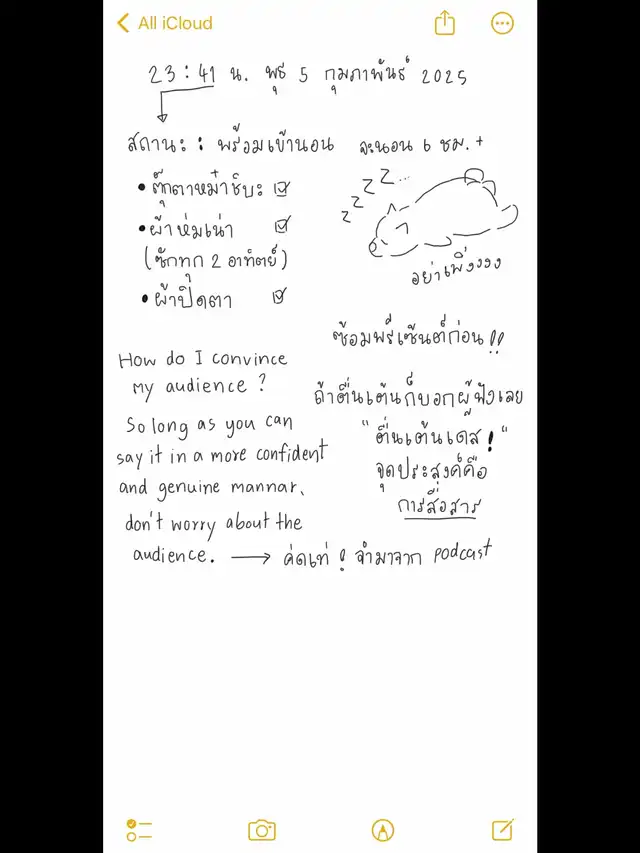 All iCloud
23:41 น. พุธ 5 กุมภาพันธ์ 2025
สถานะ : พร้อมเข้านอน จะนอน 6 ชม. +
• ตุ๊กตาหมาชิบะ
• ผ้าห่มเน่า
(ซักทุก 2 อาทิตย์)
• ผ้าปิดตา
z z z z ...
อย่าเพิ่งงงง
ซ้อมพรีเซ้นต์ก่อน !!
ถ้าตื่นเต้นก็บอกผู้ฟังเลย
"ตื่นเต้นเดส!"
จุดประสงค์คือ
การสื่อสาร
How do I convince
my audience ?
So long as you can
say it in a more confident
and genuine mannar,
don't worry about the
audience. → ค่ดเท่ ! จำมาจาก podcast